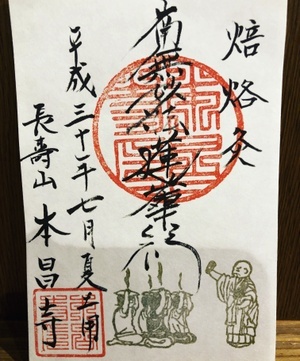 焙烙灸
南無妙法蓮華経
平成三十年七月夏土用
長壽山 本昌寺